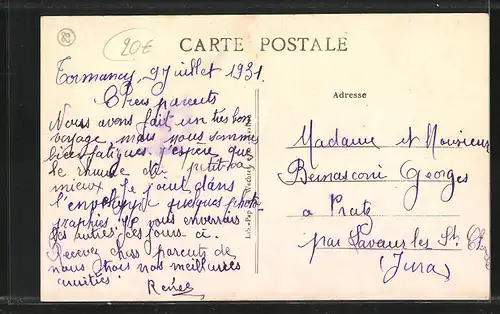 20€
CARTE POSTALE
Tormancy 9 Juillet 1931.
Chers parents
Nous avons fait un très bon
voyage mais nous sommes
bien fatigués. j'espère que
le rhume du petit va
mieux. Je joint dans
l'enveloppe quelques photo
graphies. je vous enverrais
les autres ces jours ci.
Recevez chers parents de
nous trois nos meilleures
amitiés
Renée
Adresse
Madame et Monsieur
Bernasconi Georges
à Pratz
par Lavans les St. Claude
(Jura)